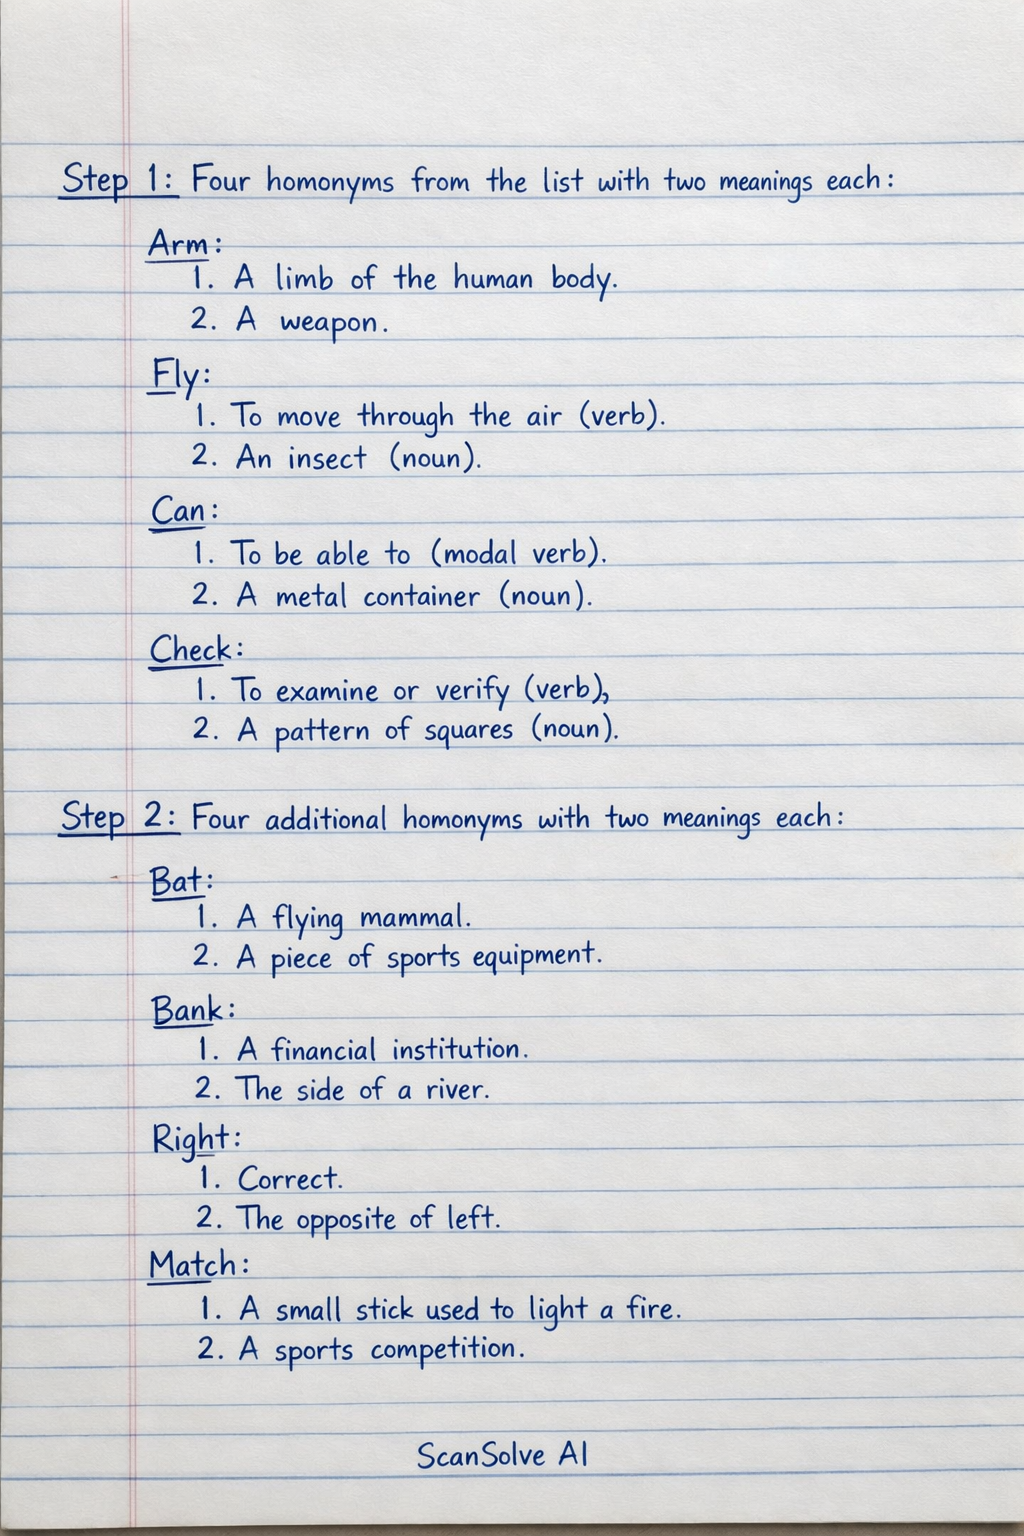 Step 1: Four homonyms from the list with two meanings each:
Arm:
1. A limb of the human body.
2. A weapon.
Fly:
1. To move through the air (verb).
2. An insect (noun).
Can:
1. To be able to (modal verb).
2. A metal container (noun).
Check:
1. To examine or verify (verb),
2. A pattern of squares (noun).
Step 2: Four additional homonyms with two meanings each:
Bat:
1. A flying mammal.
2. A piece of sports equipment.
Bank:
1. A financial institution.
2. The side of a river.
Right:
1. Correct.
2. The opposite of left.
Match:
1. A small stick used to light a fire.
2. A sports competition.
ScanSolve AI